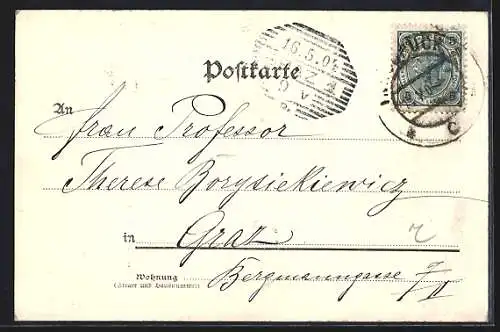 16.5.01
Postkarte
An
Frau Professor
Therese Borysiekiewicz
in Graz
Wohnung Bergmanngasse 7
(Strasse und Hausnummer) II
C